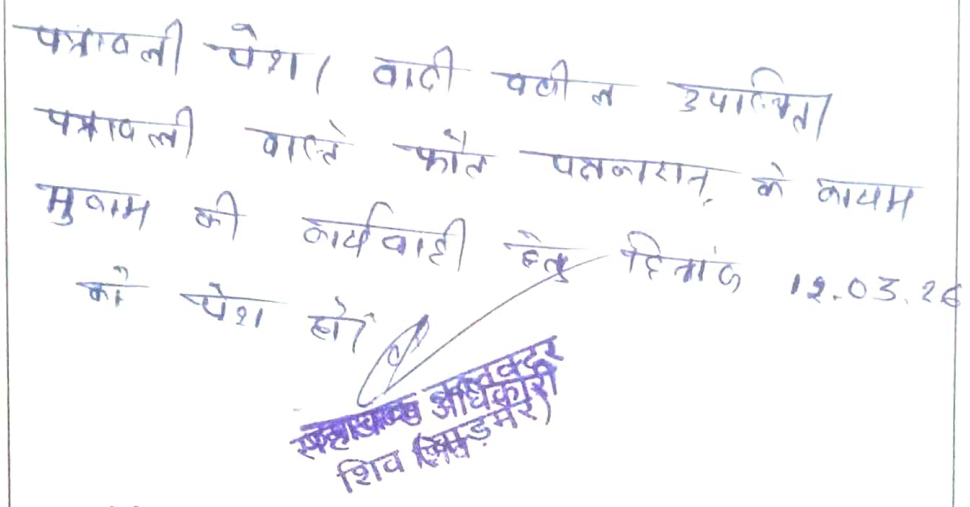 पत्रावली पेश। वादी वकील उपस्थित।
पत्रावली वास्ते फौत पक्षकारान् के कायम
मुकाम की कार्यवाही हेतु दिनांक 12.03.26
को पेश हो।
सहायक कलक्टर
अधिकारी
शिव (बाड़मेर)